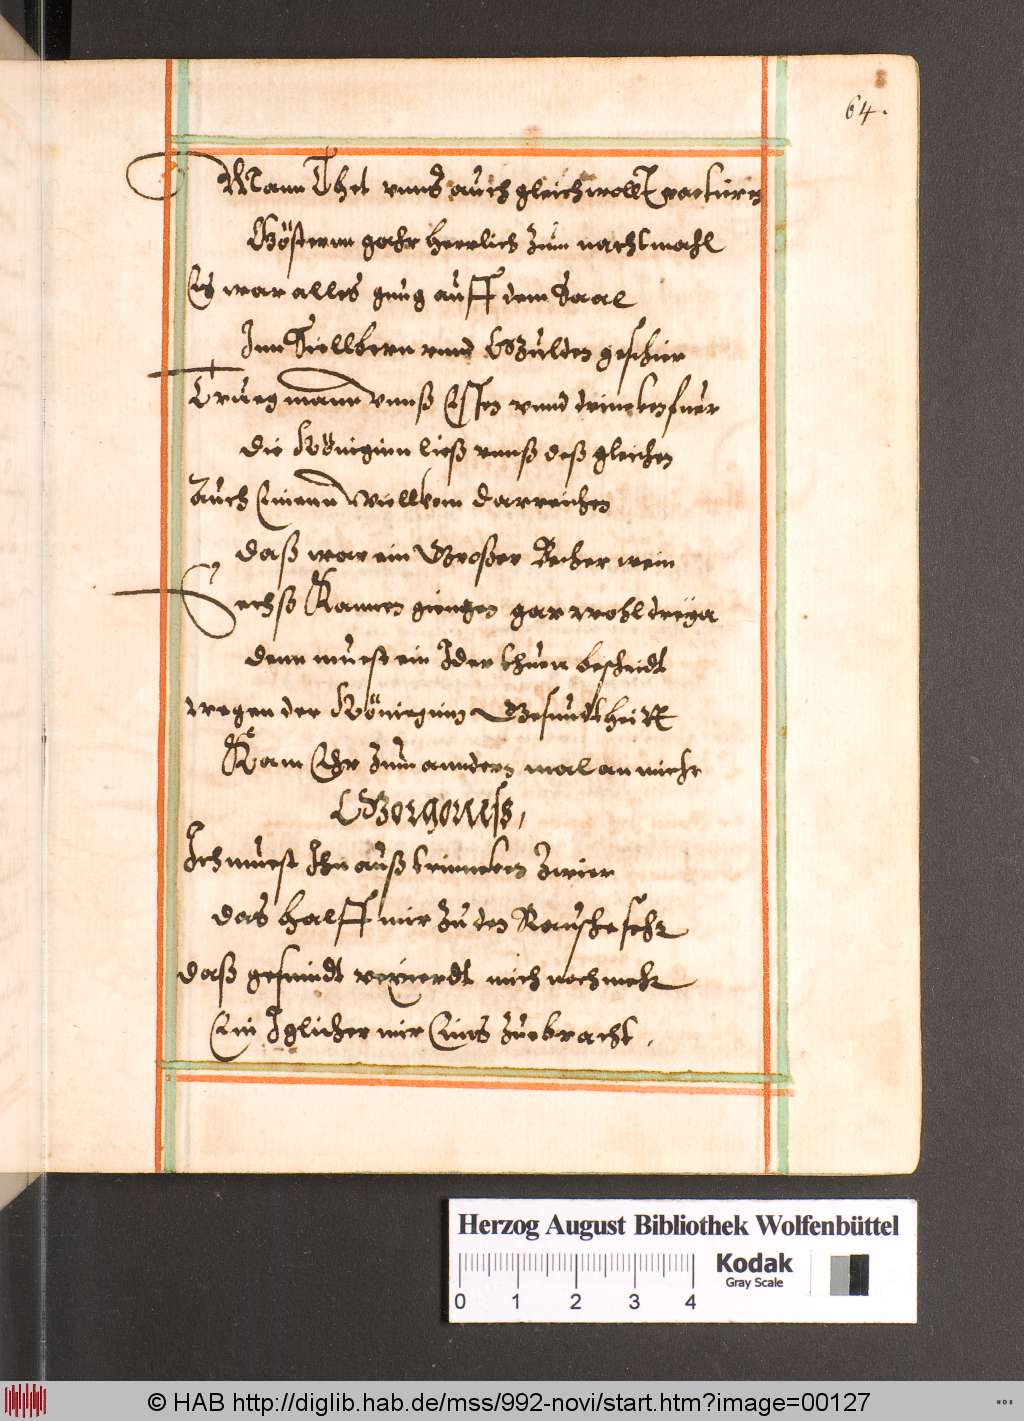 64.
Mann Thet vnns auch gleichwoll Tractirn
Gösternn gahr herrlich zum nachtmahl
Es war alles gnug auff dem Saal
Inn Siellbern vnnd Gzulden geschier
Trueg mann vnnß Essen vnnd drincken fuer
die Königinn ließ vnnß deß gleichen
Auch Einenn Wiellkom darreichen
daß war ein Großer Becher wein
Sechß Kannen giengen gar wohl drein
denn muest ein Ider thuen bescheidt
wegen der Königinn Gesundtheitt
Kam Ehr zum anndern mal an miehr
Gorgonius,
Ich muest Ihn außtrinncken zwier
das halff mir zu den Rausche sehr
daß gesindt vexierdt mich noch mehr
Ein Iglicher mir Eins zuebracht,
Herzog August Bibliothek Wolfenbüttel
0 1 2 3 4
Kodak
Gray Scale
© HAB http://diglib.hab.de/mss/992-novi/start.htm?image=00127